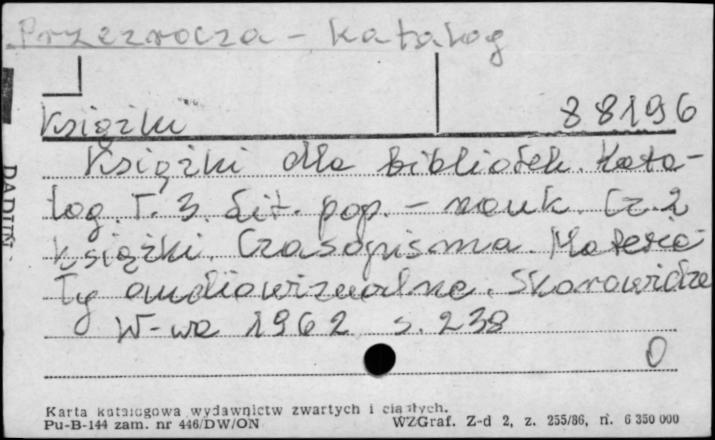 Przezrocza - katalog
Książki
88196
Książki dla bibliotek. Kata-
log. T. 3. Lit. pop. - nauk. Cz. 2
książki. Czasopisma. Materia-
ły audiowizualne. Skorowidze
W-wa 1962 s. 238
0
Karta katalogowa wydawnictw zwartych i ciągłych.
Pu-B-144 zam. nr 446/DW/ON
WZGraf. Z-d 2, z. 255/86, n. 6 350 000